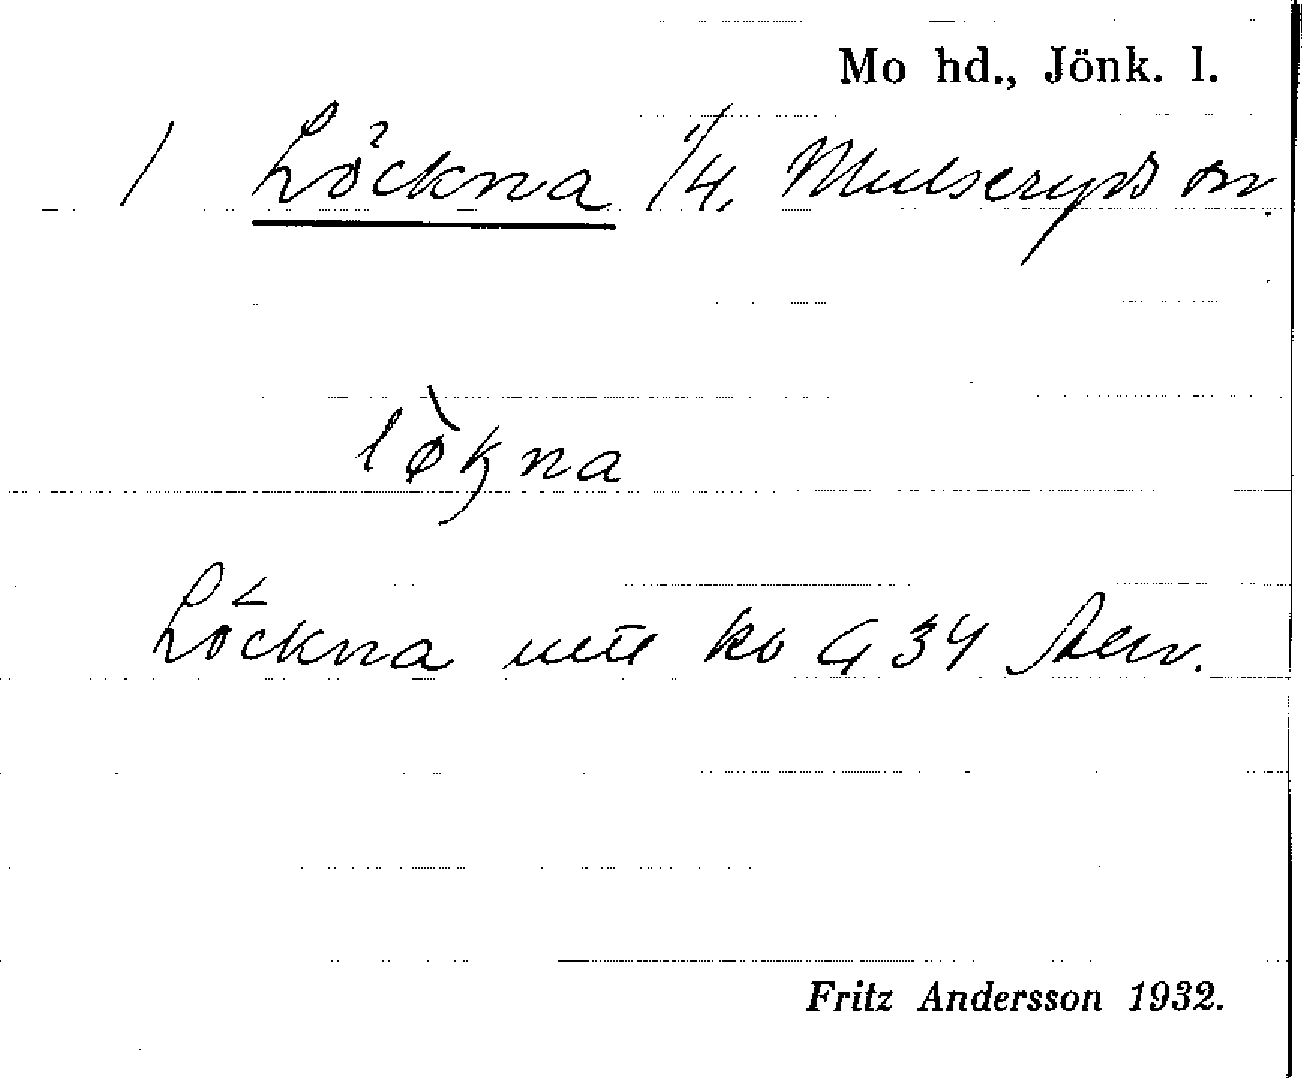 Mo hd., Jönk. l.
1 Löckna 1/4, Mulseryds sn.
løkna
Löckna utt ko G 34
Fritz Andersson 1932.